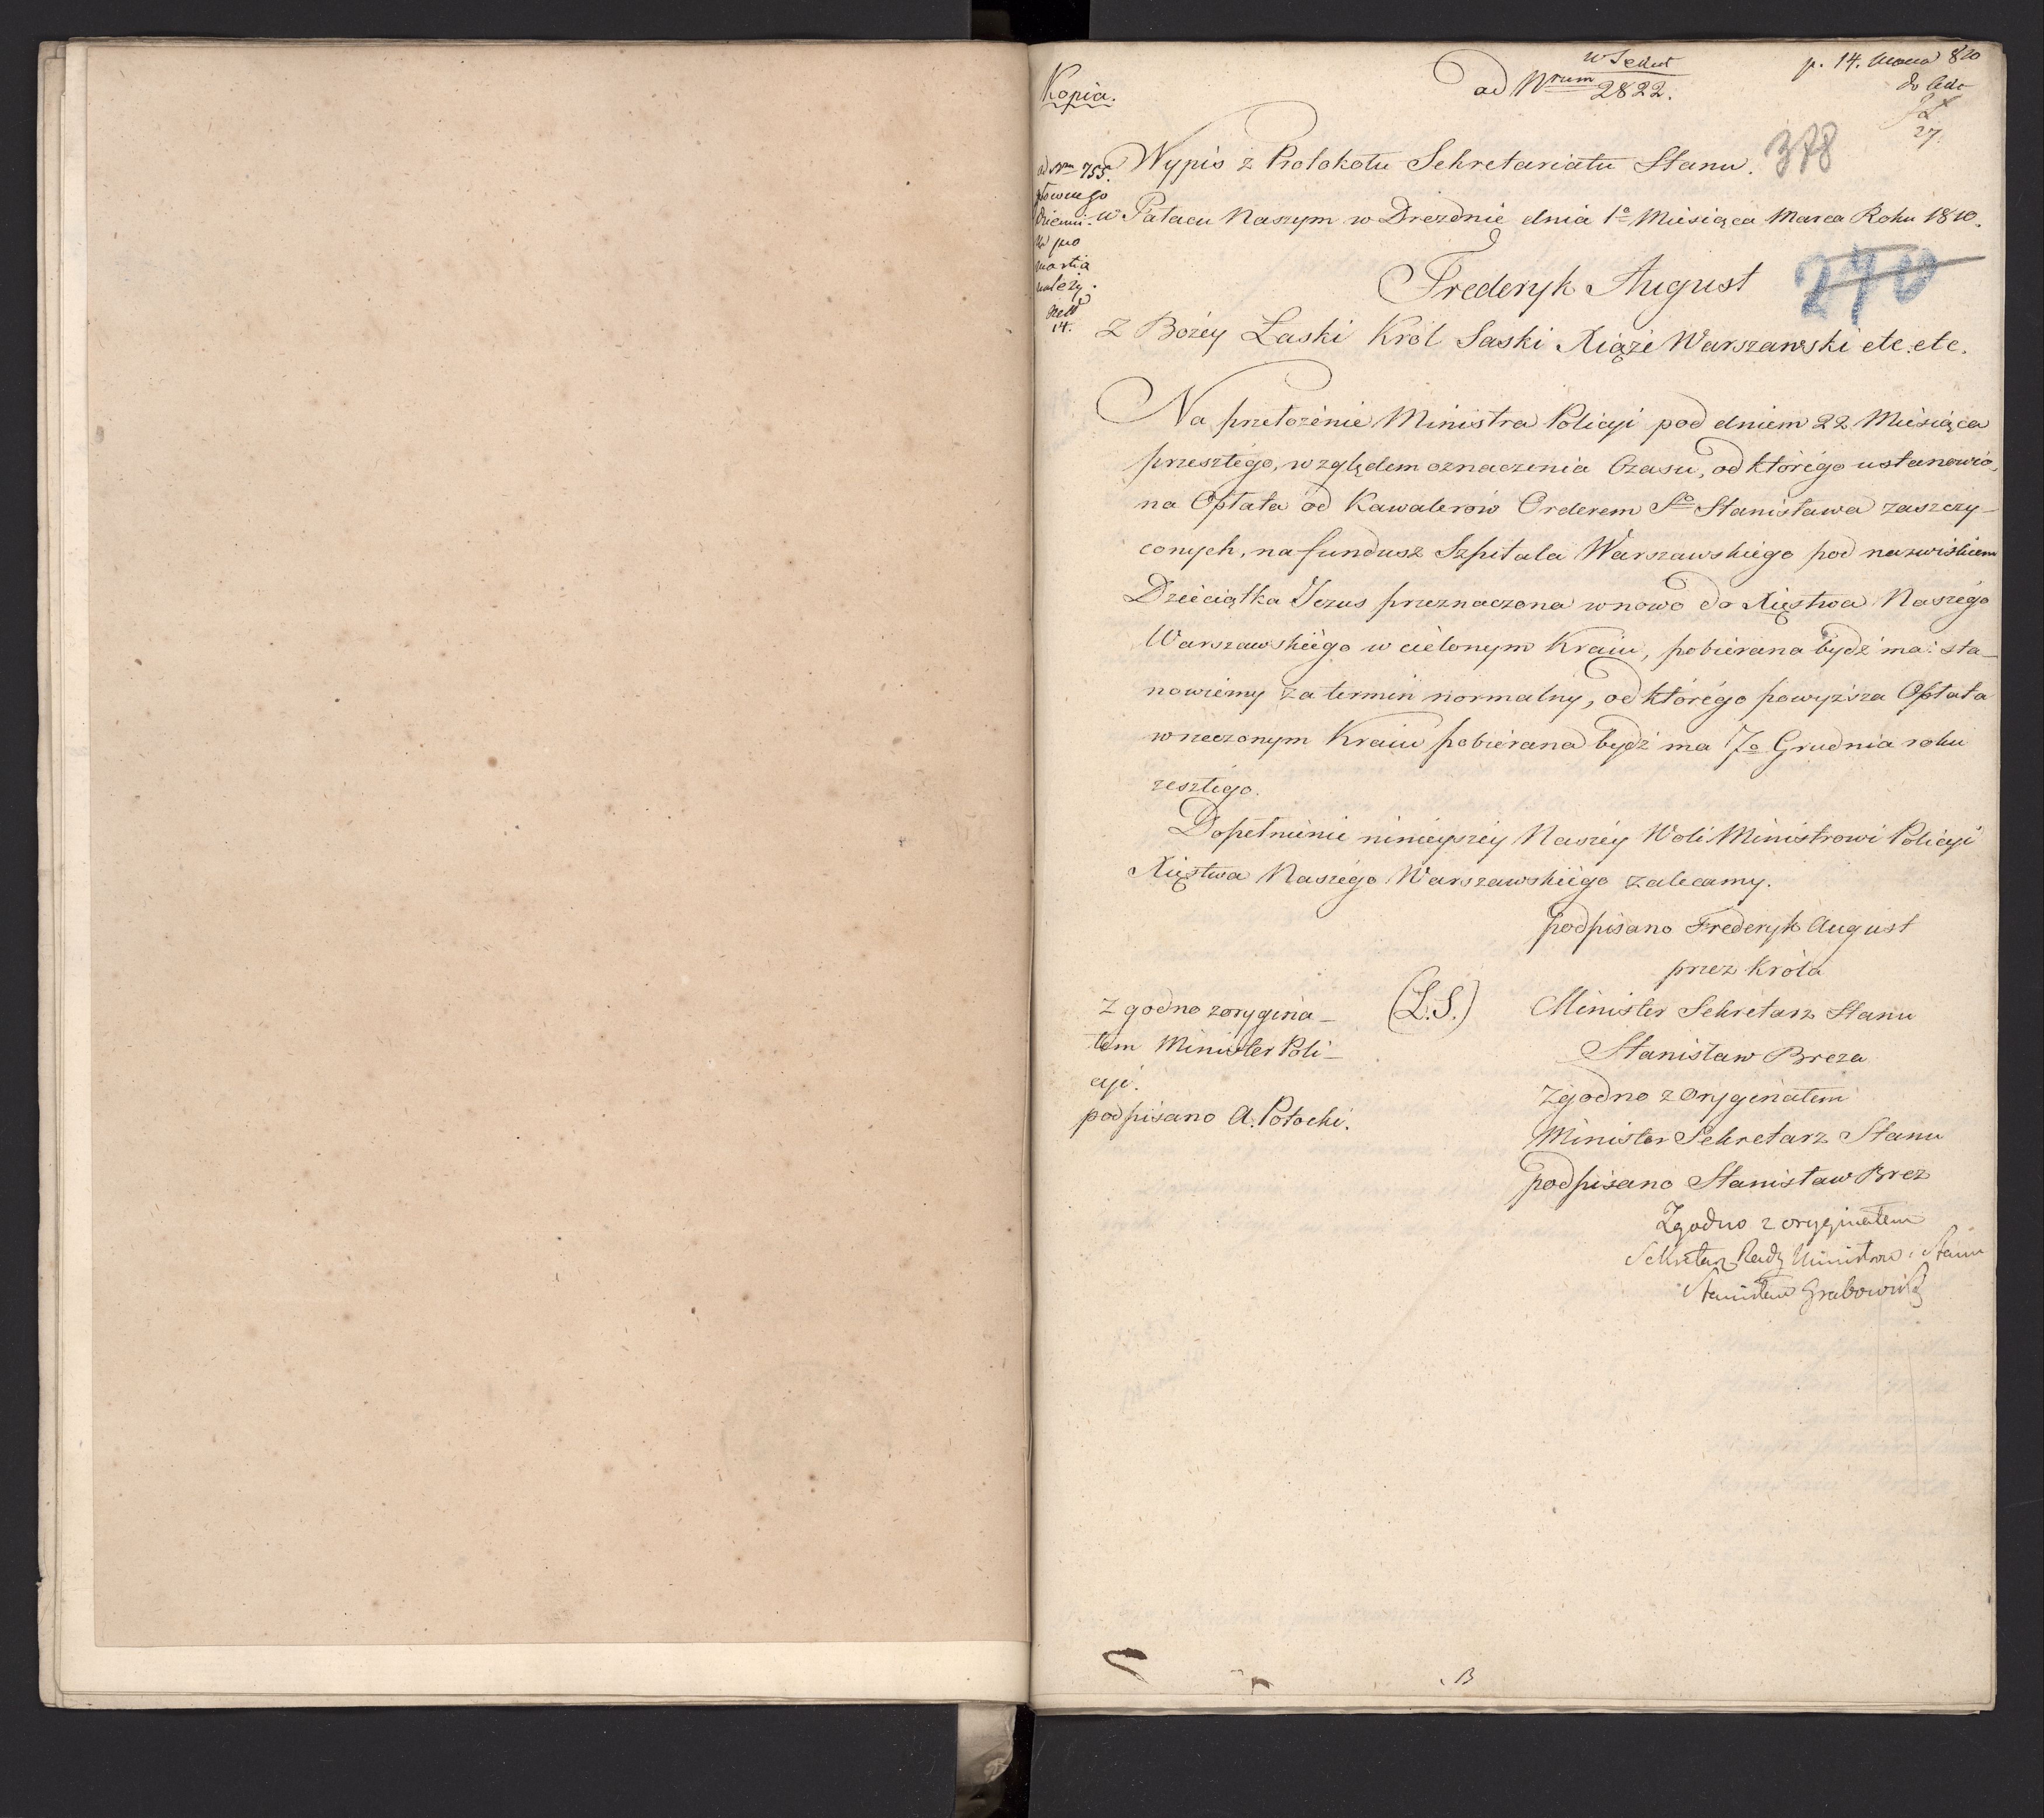 Kopia.
ad Nrum 2822.
p. 14. Marca 810
27.
378
ad Nrm 755.
Wypis z Protokołu Sekretariatu Stanu.
w Pałacu Naszym w Dreznie dnia 1o Miesiąca Marca Roku 1810.
należy.
14.
Frederyk August
270
Z Bożey Łaski Król Saski Xiąże Warszawski etc. etc.
Na przełożenie Ministra Policyi pod dniem 22 Miesiąca
przeszłego, względem oznaczenia Czasu, od którego ustanowio-
na Opłata od Kawalerów Orderem So Stanisława zaszczy-
conych, na fundusz Szpitala Warszawskiego pod nazwiskiem
Dzieciątka Jezus przeznaczona w nowo do Xięstwa Naszego
Warszawskiego wcielonym Kraiu, pobierana bydź ma: sta-
nowiemy za termin normalny, od którego powyższa Opłata
w rzeczonym Kraiu pobierana bydź ma 7o Grudnia roku
zeszłego.
Dopełnienie ninieyszey Naszey Woli Ministrowi Policyi
Xięstwa Naszego Warszawskiego zalecamy.
podpisano Frederyk August
przez Króla
Minister Sekretarz Stanu
Stanisław Breza
(L.S.)
Zgodno z orygina-
łem Minister Poli-
cyi.
podpisano A. Potocki.
Zgodno z Oryginałem
Minister Sekretarz Stanu
podpisano Stanisław Brez
Zgodno z oryginałem
Sekretarz Rady Ministrów i Stanu
Stanisław Grabowski